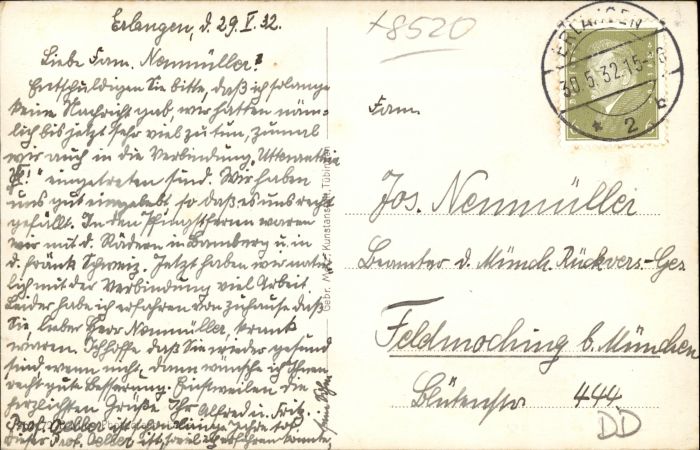 Erlangen, d. 29. V. 32.
Liebe Fam. Neumüller!
Entschuldigen Sie bitte, daß ich solange
keine Nachricht gab, wir hatten näm-
lich bis jetzt sehr viel zu tun, zumal
wir auch in die Verbindung „Uttenruthia
!" eingetreten sind. Wir haben
uns gut eingelebt so daß es uns recht
gefällt. In den Pfingstferien waren
wir mit d. Rädern in Bamberg u. in
d. fränk. Schweiz. Jetzt haben wir natür-
lich mit der Verbindung viel Arbeit.
Leider habe ich erfahren von zuhause daß
Sie lieber Herr Neumüller, krank
waren. Ich hoffe daß Sie wieder gesund
sind wenn nicht, dann wünsche ich Ihnen
recht gute Besserung. Einstweilen die
herzlichsten Grüße Ihr Alfred u. Fritz.
Prof. Oeller ist schon lange Jahre tot.
dieser Prof. Oeller ist, soviel ich erfahren konnte,
sein Sohn
Gebr. Kunstanst. Tübingen
+8520
ERLANGEN
30.5.32.15-6
* 2 b
Fam.
Jos. Neumüller
Beamter d. Münch. Rückvers-Ges
Feldmoching b. München
Blütenstr 444
DD